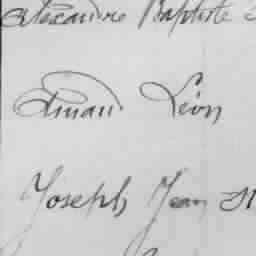 Alexandre Baptiste
Léon
Joseph Jean